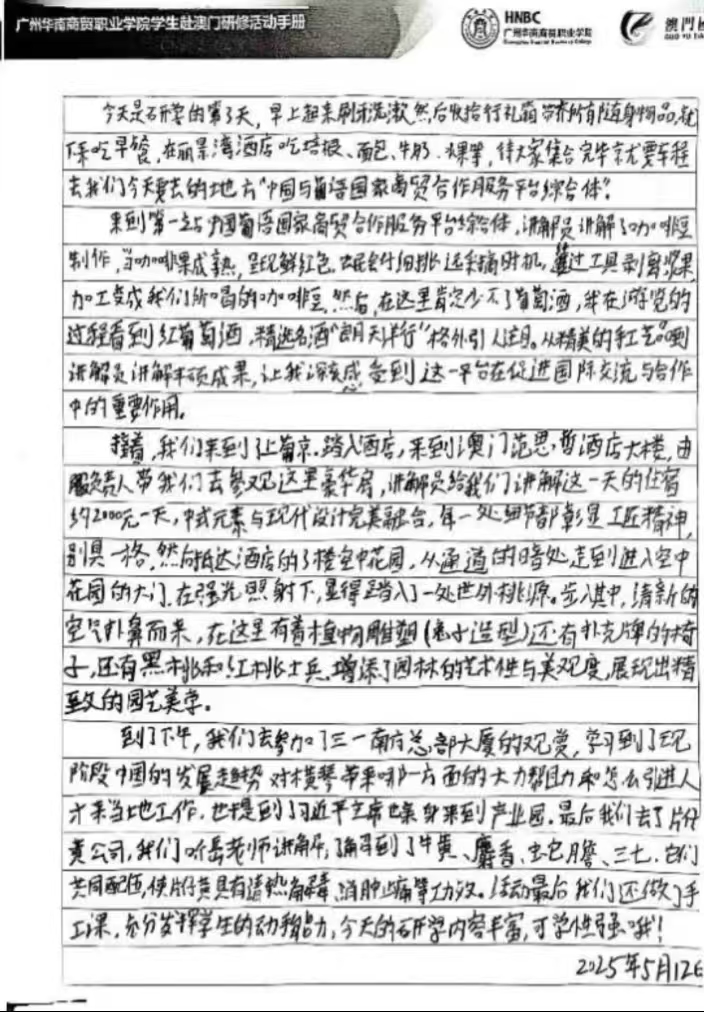 广州华南商贸职业学院学生赴澳门研修活动手册
HNBC
广州华南商贸职业学院
澳門
今天是研学的第3天，早上起来刷牙洗漱然后收拾行礼箱带齐所有随身物品，就
下来吃早餐，在丽景湾酒店吃培根、面包、牛奶、水果等，待大家集合完毕就要车程
去我们今天要去的地方“中国与葡语国家商贸合作服务平台综合体”。
来到第一站中国葡语国家商贸合作服务平台综合体，讲解员讲解了咖啡豆
制作，当咖啡果成熟，呈现鲜红色，农民会仔细挑选采摘时机，通过工具剥离浆果，
加工变成我们所喝的咖啡豆，然后，在这里肯定少不了葡萄酒，我在游览的
过程看到红葡萄酒，精选名酒“朗天洋行”格外引人注目。从精美的手工艺品到
讲解员讲解丰硕成果，让我深刻感受到这一平台在促进国际交流与合作
中的重要作用。
接着，我们来到了上葡京，踏入酒店，来到澳门范思·哲酒店大楼，由
服负责人带我们去参观这里豪华房，讲解员给我们讲解这一天的住宿
约2000元一天，中式元素与现代设计完美融合，每一处细节都彰显工匠精神，
别具一格，然后抵达酒店的3楼空中花园，从通道的暗处走到进入空中
花园的大门，在强光照射下，显得踏入了一处世外桃源。步入其中，清新的
空气扑鼻而来，在这里有着植物雕塑(兔子造型)还有扑克牌的椅
子，还有黑桃和红桃士兵，增添了园林的艺术性与美观度，展现出精
致的园艺美学。
到了下午，我们去参加了三一南方总部大厦的观赏，学习到了现
阶段中国的发展趋势对横琴带来哪一方面的大力帮助和怎么引进人
才来当地工作，也提到了习近平主席也亲身来到产业园。最后我们去了片仔
黄公司，我们听岳老师讲解，了解到了牛黄、麝香、蛇胆、三七，它们
共同配伍，使片仔黄具有清热解毒、消肿止痛等功效。活动最后我们还做了手
工课，充分发挥学生的动手能力，今天的研学内容丰富，可学性强哦！
2025年5月12日